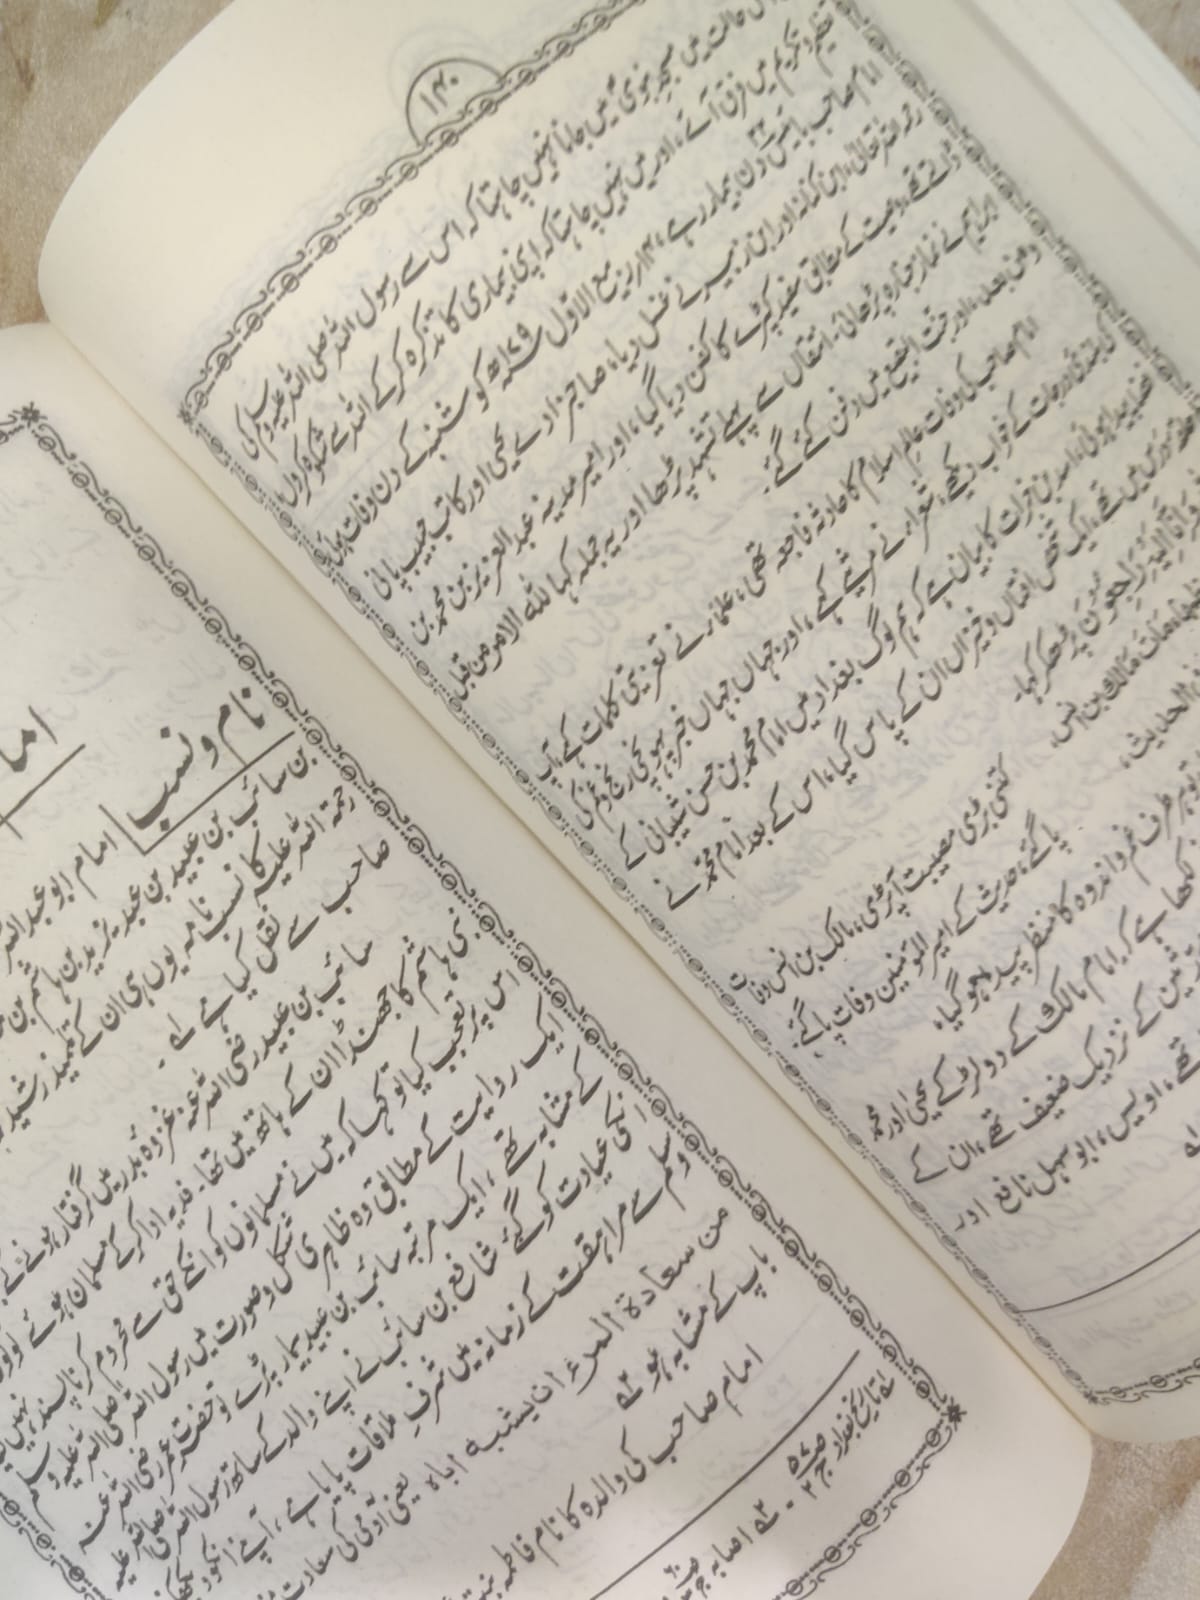 ۱۴۰
حالت میں مسجد نبوی میں جانا نہیں چاہتا کہ اس سے رسول اللہ صلی اللہ علیہ وسلم کی
تعظیم و تکریم میں فرق آئے، اور میں نہیں چاہتا کہ اپنی بیماری کا تذکرہ کر کے اللہ سے شکوہ کروں
امام صاحب بائیس دن بیمار رہے، ۱۴ ربیع الاول ۱۷۹ھ کو شنبہ کے دن وفات پائی
رحمہ اللہ تعالیٰ، ابن کنانہ اور ابن زبیر نے غسل دیا، صاحبزادے یحییٰ اور کاتب حبیب پانی
ڈالتے تھے، وصیت کے مطابق سفید کپڑے کا کفن دیا گیا، اور امیر مدینہ عبدالعزیز بن محمد بن
ابراہیم نے نماز جنازہ پڑھائی۔ انتقال سے پہلے تشہد پڑھا اور یہ جملہ کہا للہ الامر من قبل
ومن بعد، اور جنت البقیع میں دفن کئے گئے۔
امام صاحب کی وفات عالم اسلام کا حادثہ فاجعہ تھی، علماء نے تعزیتی کلمات کہے، آپ
کی بلندی درجات کے خواب دیکھے، شعراء نے مرثیے کہے، اور جہاں جہاں خبر پہونچی رنج و غم کی
فضا پیدا ہوگئی، اسد بن فرات کا بیان ہے کہ ہم لوگ بغداد میں امام محمد بن حسن شیبانی کے
میں تھے، ایک شخص افتاں و خیزاں ان کے پاس گیا، اس کے بعد امام محمد نے
راجعون پڑھ کر کہا۔
مات مالک بن انس، کتنی بڑی مصیبت آپڑی، مالک بن انس وفات
الحدیث، پاگئے، حدیث کے امیر المؤمنین وفات پاگئے۔
ہر طرف غم و اندوہ کا منظر پیدا ہو گیا۔
لکھا ہے کہ امام مالک کے دو لڑکے یحییٰ اور محمد
کے نزدیک ضعیف تھے، ان کے
تھے، اویس، ابو سہل نافع اور
اما
نام و نسب
امام ابو عبد اللہ
بن سائب بن عبید بن عبد یزید بن ہاشم بن
رحمۃ اللہ علیہ کا نسب نامہ یوں ہی ان کے تلمیذ رشید
صاحب سے نقل کیا ہے۔
سائب بن عبید رضی اللہ عنہ غزوہ بدر میں گرفتار ہونے کے
بنی ہاشم کا جھنڈا ان کے ہاتھ میں تھا۔ فدیہ ادا کر کے مسلمان ہوئے لوگوں
اس پر تعجب کیا تو کہا کہ میں نے مسلمانوں کو انکے حق سے محروم کرنا پسند نہیں
ایک روایت کے مطابق وہ ظاہری شکل و صورت میں رسول اللہ صلی اللہ علیہ وسلم
کے مشابہ تھے، ایک مرتبہ سائب بن عبید بیمار پڑے تو حضرت عمر رضی اللہ عنہ
انکی عیادت کو گئے شافع بن سائب نے اپنے والد کے ساتھ رسول اللہ صلی اللہ علیہ
وسلم سے مراہقت کے زمانہ میں شرف ملاقات پایا ہے، آپ نے انکو دیکھ
من سعادة المرء ان یشبه اباه یعنی آدمی کی سعادت
باپ کے مشابہ ہو
امام صاحب کی والدہ کا نام فاطمہ بنت
تاریخ بغداد ج۲ ص۵۷ - اصابہ ج